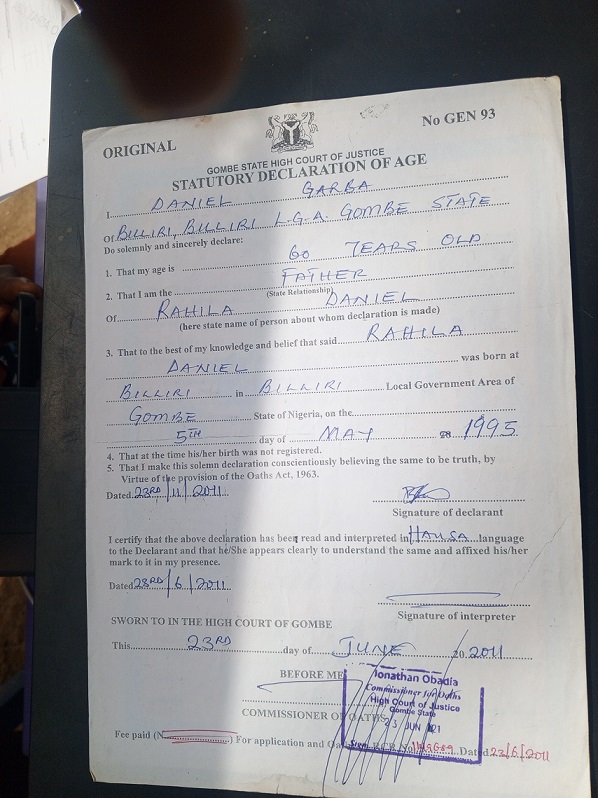 ORIGINAL
No GEN 93
GOMBE STATE HIGH COURT OF JUSTICE
STATUTORY DECLARATION OF AGE
I DANIEL GARBA
Of BILLIRI, BILLIRI L.G.A. GOMBE STATE
Do solemnly and sincerely declare:
1. That my age is 60 YEARS OLD
2. That I am the FATHER
(State Relationship)
Of RAHILA DANIEL
(here state name of person about whom declaration is made)
3. That to the best of my knowledge and belief that said RAHILA
DANIEL was born at
BILLIRI in BILLIRI Local Government Area of
GOMBE State of Nigeria, on the
5TH day of MAY 1995
4. That at the time his/her birth was not registered.
5. That I make this solemn declaration conscientiously believing the same to be truth, by
Virtue of the provision of the Oaths Act, 1963.
Dated 23RD/11/2011
Signature of declarant
I certify that the above declaration has been read and interpreted in HAUSA language
to the Declarant and that he/She appears clearly to understand the same and affixed his/her
mark to it in my presence.
Dated 23RD/6/2011
Signature of interpreter
SWORN TO IN THE HIGH COURT OF GOMBE
This 23RD day of JUNE 20 2011
BEFORE ME
Jonathan Obadia
Commissioner for Oaths
High Court of Justice
Gombe State
23 JUN
COMMISSIONER OF OATHS
Sign
Fee paid (N ) For application and RCR No Dated 23/6/2011